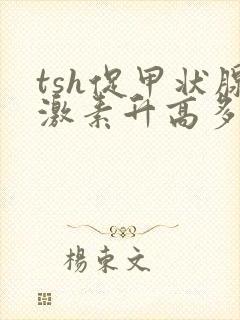 tsh促甲状腺
激素升高多
楊東文